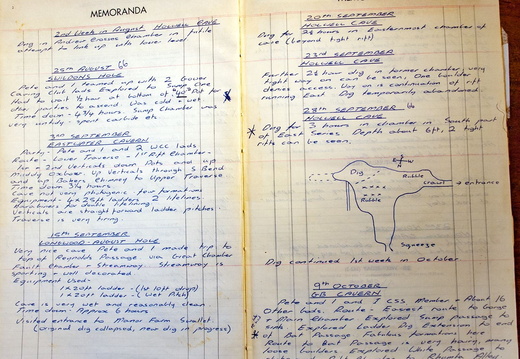 MEMORANDA
2nd Week in August HOLWELL CAVE
Dig in Andrew Crosse Chamber in futile
attempt to link up with lower level
25th AUGUST 66
SWILDONS HOLE
Pete and I teamed up with 2 Gower
Caving Club lads Explored to Sump One
Had to wait ½ hour at bottom of "40" Pot for
other parties to ascend Was cold + wet
Time down - 4¾ hours Sump Chamber was
very untidy, spent carbide etc
3rd SEPTEMBER
EASTWATER CAVERN
Party: Pete and I and 2 WCC lads
Route - Lower Traverse - 1st Rift Chamber -
1st + 2nd Verticals down Pots, and up
Muddy Oxbow. Up Verticals through S Bend
and up Bakers Chimney to Upper Traverse
Time down 3¾ hours
Cave not very photogenic, few formations
Equipment - 4 x 25ft ladders 2 lifelines
Karabiners for double lifelining
Verticals are straightforward ladder pitches.
Traverse is very tiring.
15th SEPTEMBER
LONGWOOD-AUGUST HOLE
Very nice cave Pete and I made trip to
top of Reynolds Passage via Great Chamber
Fault Chamber + Streamway. Streamway is
sporting + well decorated
Equipment Used-
1 x 20ft ladder - (1st 10ft drop)
1 x 20ft ladder - (Wet Pitch)
Cave is very wet and reasonably clean
Time down - Approx 6 hours
Visited entrance to Manor Farm Swallet
(original dig collapsed, new dig in progress)
20th SEPTEMBER
HOLWELL CAVE
Dig for 2½ hours in Easternmost chamber of
cave (beyond tight rift)
23rd SEPTEMBER
HOLWELL CAVE
Further 2½ hour dig in former chamber, very
tight way on can be seen. One boulder
denies access. Way on is continuation of rift
running East Dig temporarily abandoned.
28th SEPTEMBER 66
HOLWELL CAVE
Dig for 3 hours in chamber in South part
of East Series. Depth about 6ft, 2 tight
rifts can be seen.
Dig
Rubble
crawl → entrance
Rubble
Squeeze
Dig continued 1st week in October
9th OCTOBER
GB CAVERN
Pete and I, CSS Member + About 16
Other lads. Route - Easiest route to Gorge
+ Main Chamber Explored Sump passage to
sink Explored Ladder Dig Extension to end
of Bat Passage Fabulous formations here
Route to Bat Passage is very tiring, many
loose boulders Explored White Passage to